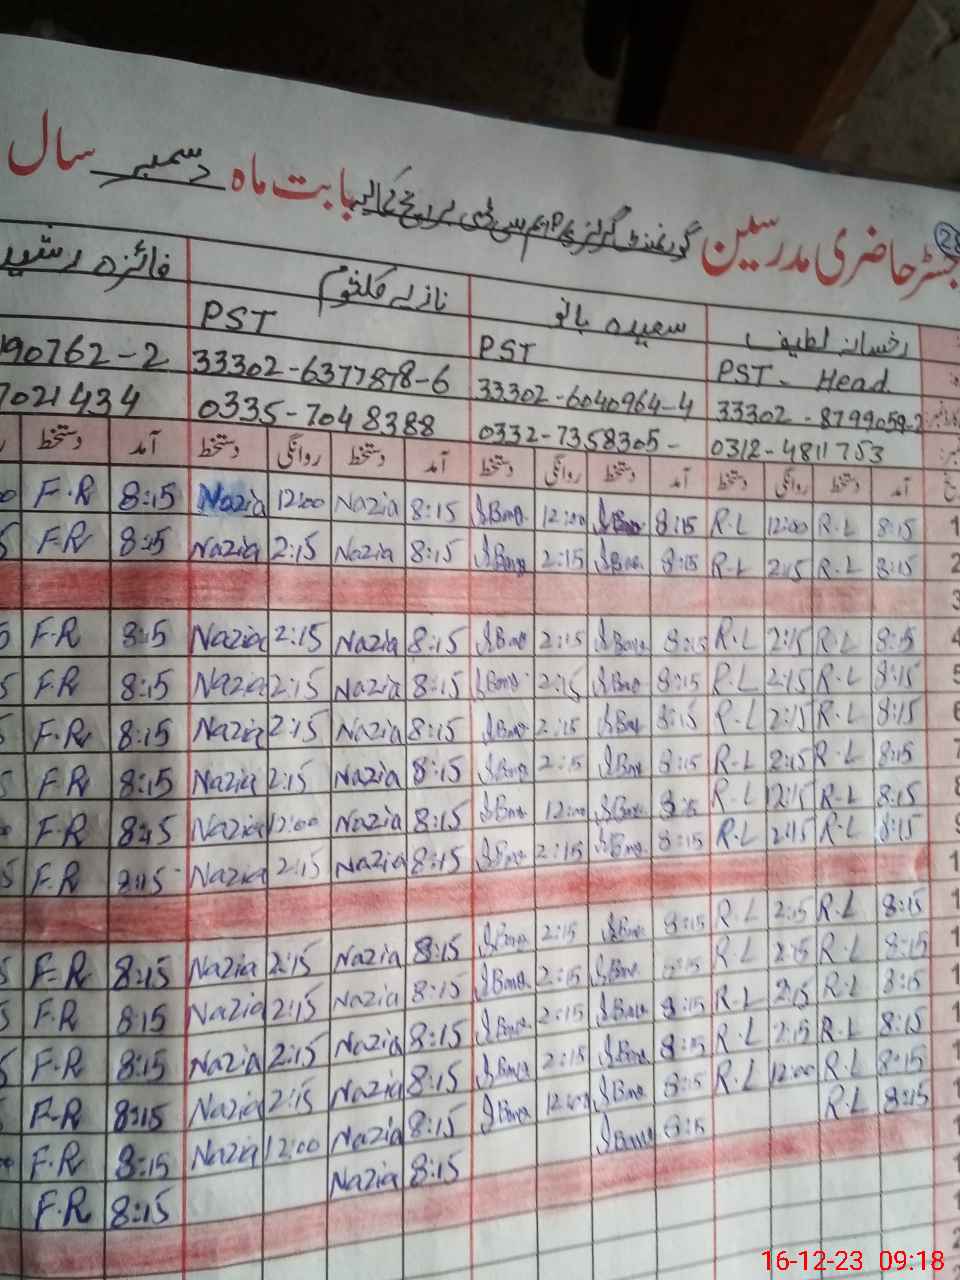 28
جسٹر حاضری مدرسین گورنمنٹ گرلز بابت ماہ دسمبر سال
رخسانہ لطیف سعیدہ بانو نازیہ کلثوم فائزہ رشید
PST - Head PST PST
33302-8799059-2 33302-6040964-4 33302-6377878-6 190762-2
0312-4811753 0332-7358305- 0335-7048388 7021434
آمد دستخط روانگی دستخط آمد دستخط روانگی دستخط آمد دستخط روانگی دستخط آمد دستخط
1 8:15 R.L 12:00 R.L 8:15 SBano 12:00 SBano 8:15 Nazia 12:00 Nazia 8:15 F.R
2 8:15 R.L 2:15 R.L 8:15 SBano 2:15 SBano 8:15 Nazia 2:15 Nazia 8:15 F.R
3
4 8:15 R.L 2:15 R.L 8:15 SBano 2:15 SBano 8:15 Nazia 2:15 Nazia 8:15 F.R
5 8:15 R.L 2:15 R.L 8:15 SBano 2:15 SBano 8:15 Nazia 2:15 Nazia 8:15 F.R
6 8:15 R.L 2:15 R.L 8:15 SBano 2:15 SBano 8:15 Nazia 2:15 Nazia 8:15 F.R
7 8:15 R.L 2:15 R.L 8:15 SBano 2:15 SBano 8:15 Nazia 2:15 Nazia 8:15 F.R
8 8:15 R.L 12:15 R.L 8:15 SBano 12:00 SBano 8:15 Nazia 12:00 Nazia 8:15 F.R
9 8:15 R.L 2:15 R.L 8:15 SBano 2:15 SBano 8:15 Nazia 2:15 Nazia 8:15 F.R
1
1 8:15 R.L 2:15 R.L 8:15 SBano 2:15 SBano 8:15 Nazia 2:15 Nazia 8:15 F.R
1 8:15 R.L 2:15 R.L 8:15 SBano 2:15 SBano 8:15 Nazia 2:15 Nazia 8:15 F.R
1 8:15 R.L 2:15 R.L 8:15 SBano 2:15 SBano 8:15 Nazia 2:15 Nazia 8:15 F.R
1 8:15 R.L 2:15 R.L 8:15 SBano 2:15 SBano 8:15 Nazia 2:15 Nazia 8:15 F.R
1 8:15 R.L 12:00 R.L 8:15 SBano 12:00 SBano 8:15 Nazia 12:00 Nazia 8:15 F.R
1 8:15 R.L 8:15 SBano 8:15 Nazia 8:15 F.R
16-12-23 09:18